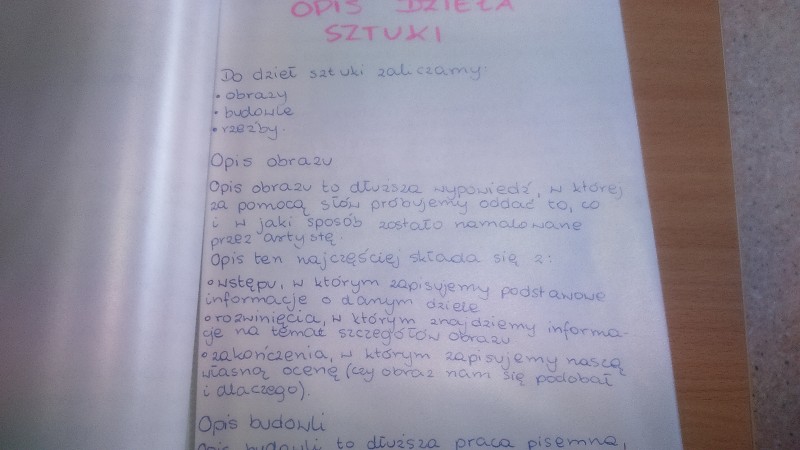 OPIS DZIEŁA
SZTUKI
Do dzieł sztuki zaliczamy:
• obrazy
• budowle
• rzeźby.
Opis obrazu
Opis obrazu to dłuższa wypowiedź, w której
za pomocą słów próbujemy oddać to, co
i w jaki sposób zostało namalowane
przez artystę.
Opis ten najczęściej składa się z:
• wstępu, w którym zapisujemy podstawowe
informacje o danym dziele
• rozwinięcia, w którym znajdziemy informa-
cje na temat szczegółów obrazu
• zakończenia, w którym zapisujemy naszą
własną ocenę (czy obraz nam się podobał
i dlaczego).
Opis budowli
Opis budowli to dłuższa praca pisemna,